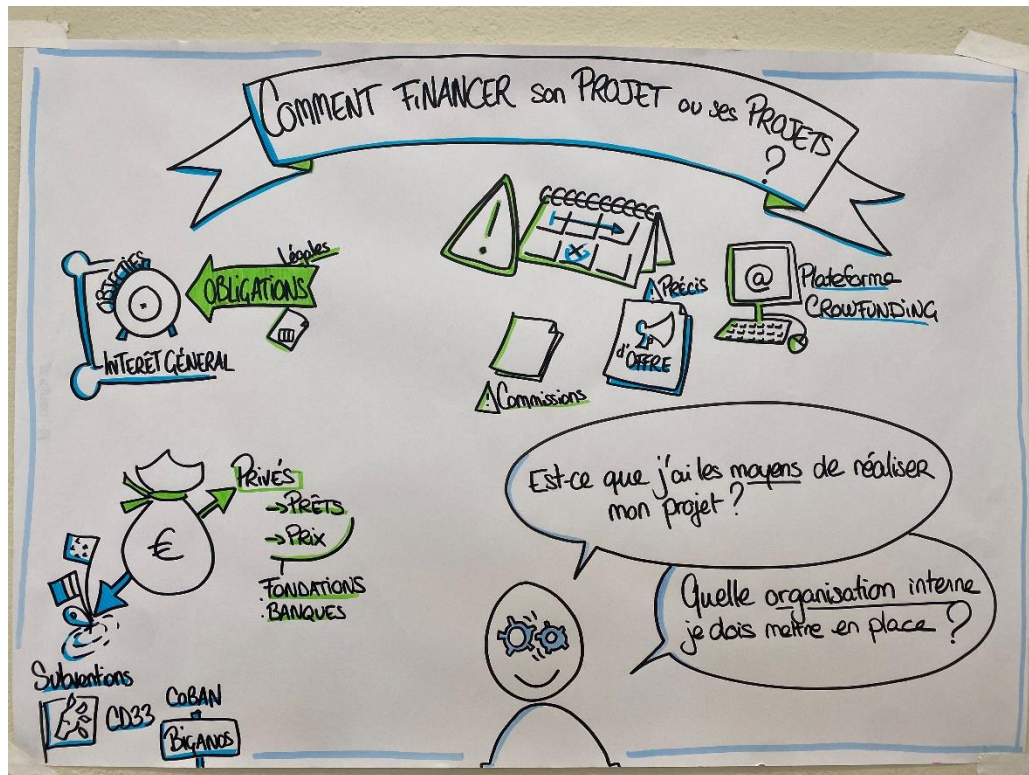 COMMENT FINANCER son PROJET ou ses PROJETS
?
OBJECTIFS
INTERÊT GÉNERAL
Légales
OBLIGATIONS
!
@
Plateforme
CROWFUNDING
Précis
d'OFFRE
! Commissions
€
PRIVÉS
→ PRÊTS
→ PRIX
. FONDATIONS
. BANQUES
Subventions
CD33
COBAN
BIGANOS
Est-ce que j'ai les moyens de réaliser
mon projet ?
Quelle organisation interne
je dois mettre en place ?